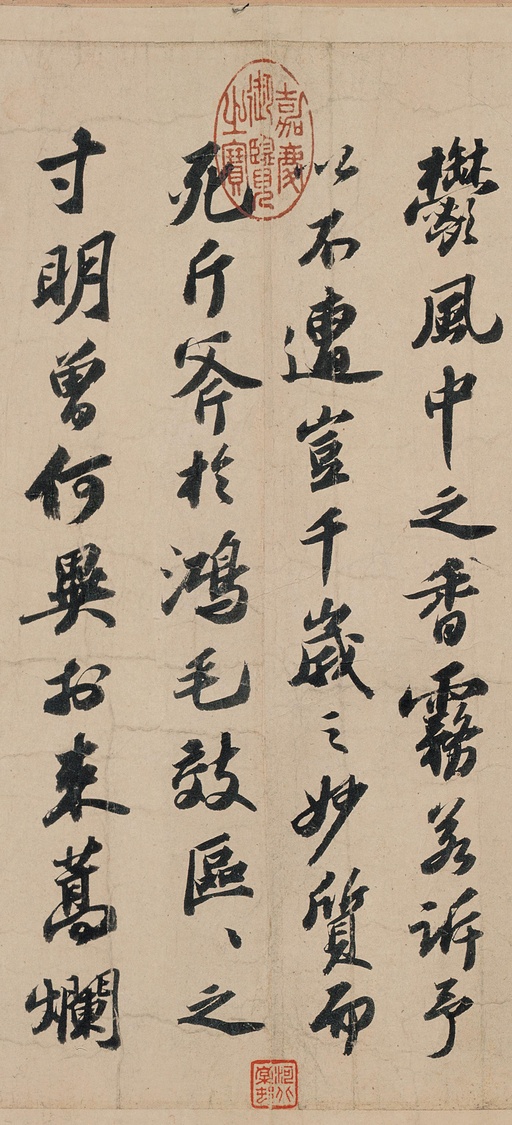 鬱風中之香霧若訴予
以不遭豈千歲之妙質而
死斤斧於鴻毛效區、之
寸明曾何異於束蒿爛
嘉慶御覽之寶
河北棠邨